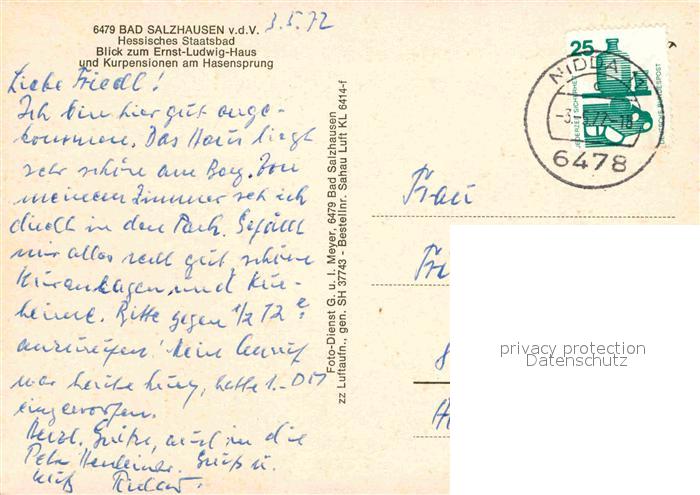 6479 BAD SALZHAUSEN v.d.V.
Hessisches Staatsbad
Blick zum Ernst-Ludwig-Haus
und Kurpensionen am Hasensprung
3.5.72
Liebe Friedl!
Ich bin hier gut ange-
kommen. Das Haus liegt
sehr schön am Berg. Von
meinem Zimmer seh ich
direkt in den Park. Gefällt
mir alles sehr gut, schöne
Kuranlagen, und Kur-
heime. Bitte gegen 1/2 12
anzurufen! Mein Anruf
war heute kurz, hatte 1.-DM
eingeworfen.
Herzl. Grüße, auch an die
Gruß u.
Kuß
Foto-Dienst G. u. I. Meyer, 6479 Bad Salzhausen
zz Luftaufn., gen. SH 37743 - Bestellnr. Sahau Luft KL 6414-f
25
JEDERZEIT SICHERHEIT
DEUTSCHE BUNDESPOST
NIDDA
6478
Frau
privacy protection
Datenschutz